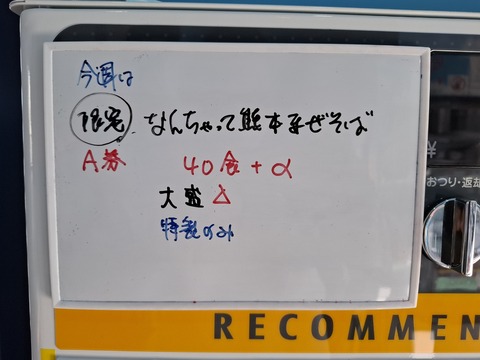 今週は
限定 なんちゃって熊本まぜそば
A券 40食+α
大盛 △
特製のみ
¥
おつり・返却
RECOMMEN